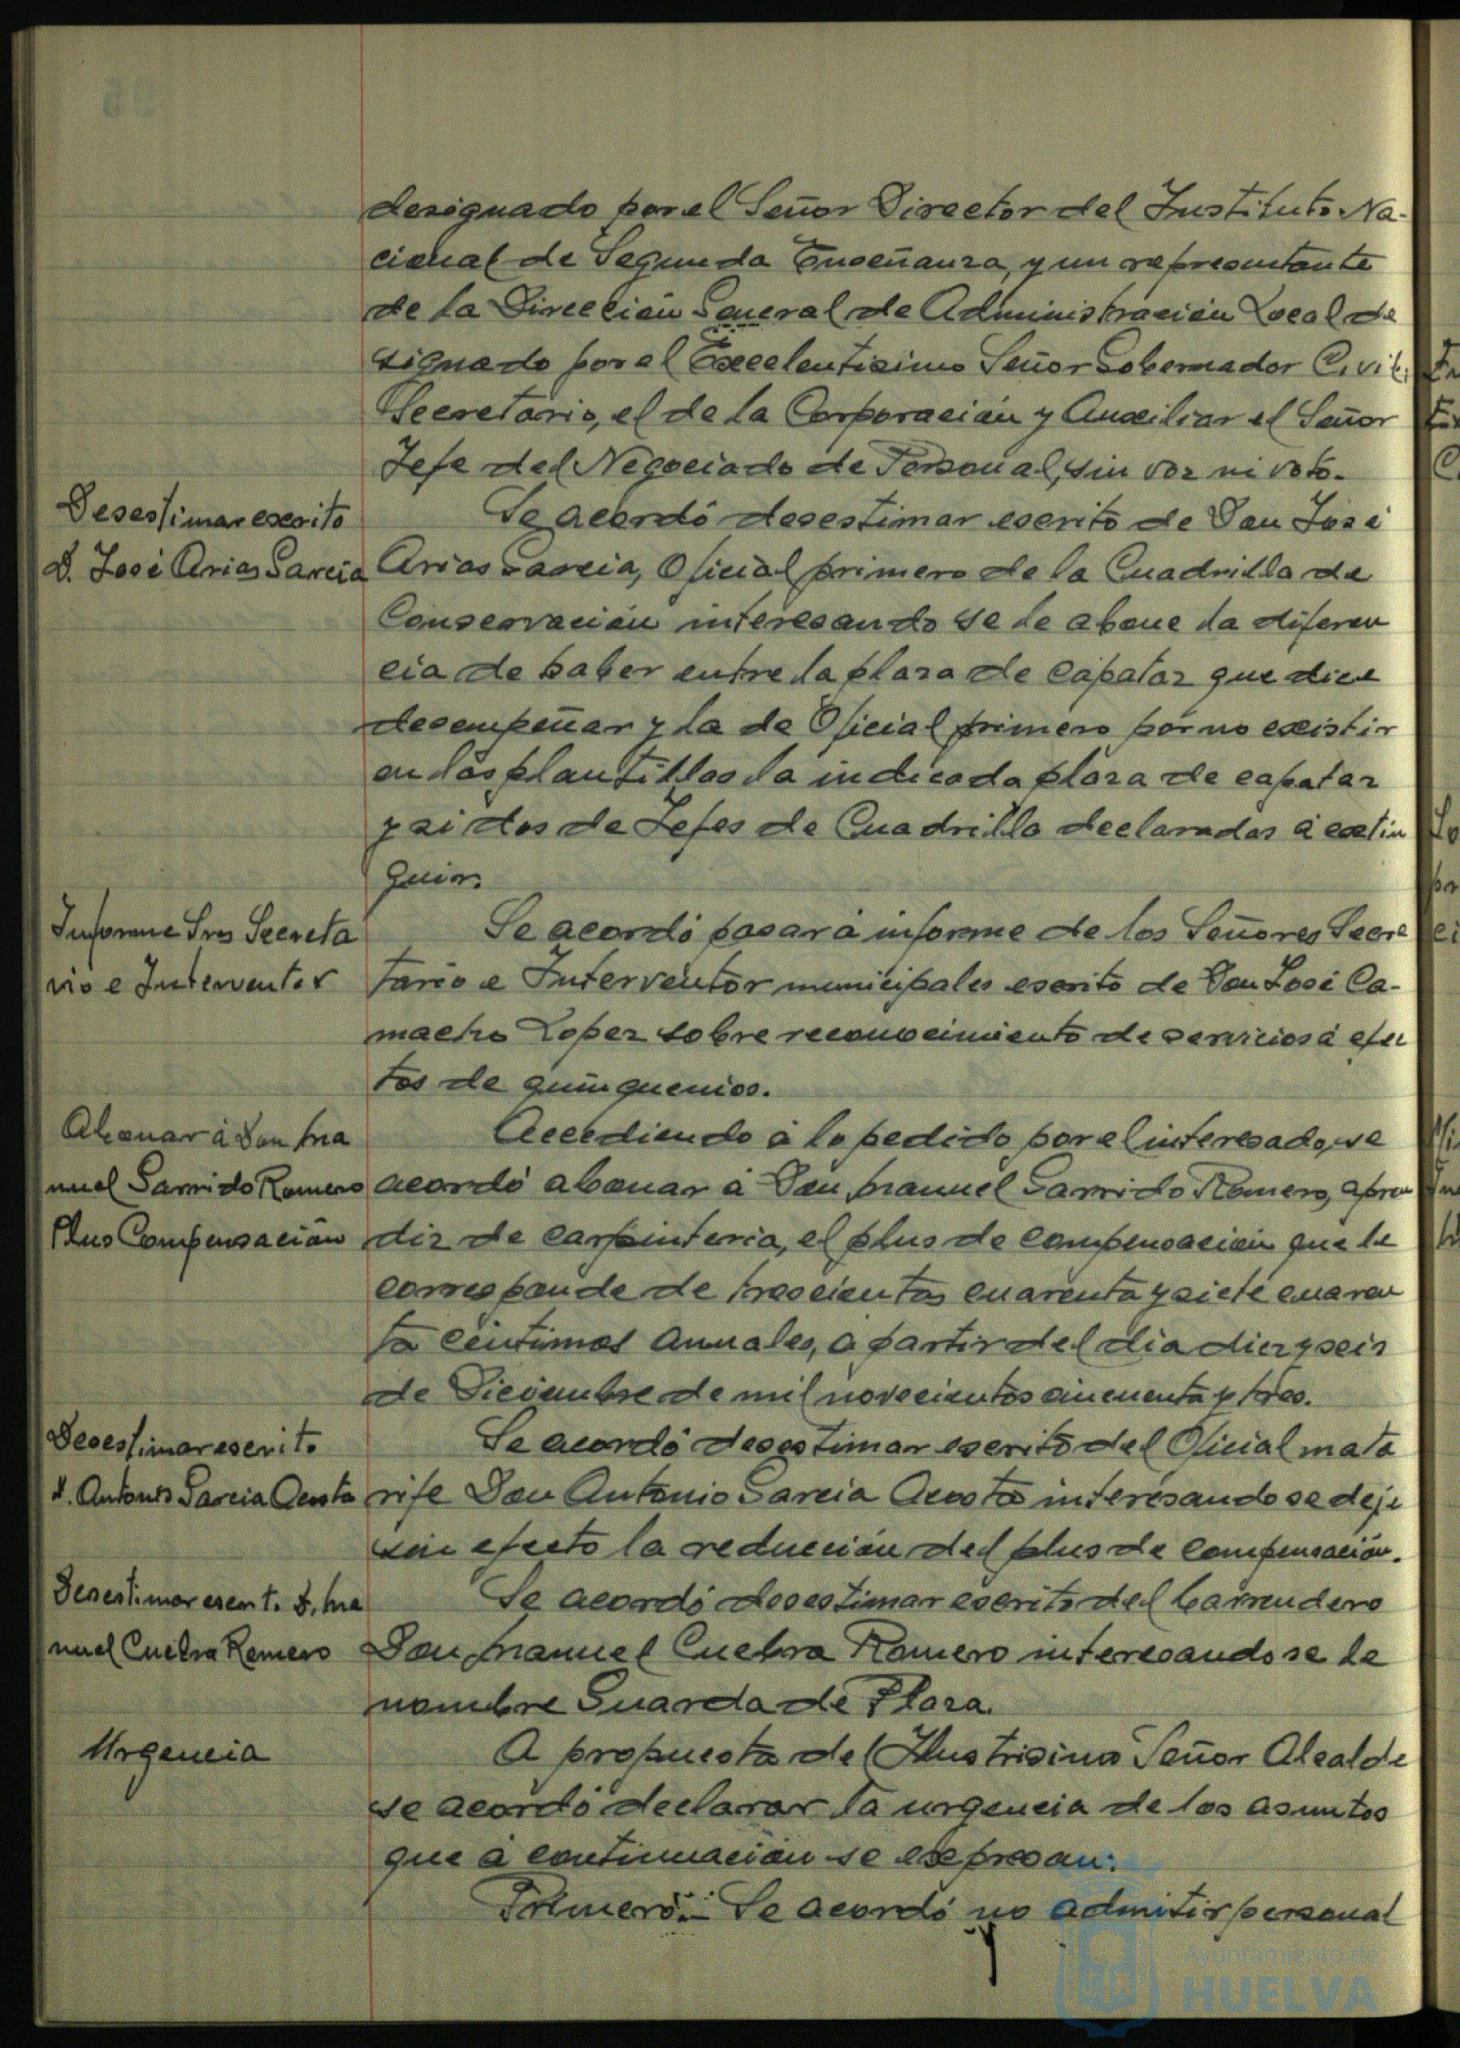 designado por el Señor Director del Instituto Na-
cional de Segunda Enseñanza, y un representante
de la Dirección General de Administración Local de
signado por el Excelentisimo Señor Gobernador Civil;
Secretario, el de la Corporación y Auxiliar el Señor
Jefe del Negociado de Personal, sin voz ni voto.
Desestimar escrito
D. José Arias Garcia
Se acordó desestimar escrito de Don José
Arias Garcia, Oficial primero de la Cuadrilla de
Conservación interesando se le abone la diferen
cia de haber entre la plaza de capataz que dice
desempeñar y la de Oficial primero por no existir
en las plantillas la indicada plaza de capataz
y si dos de Jefes de Cuadrilla declaradas á extin
guir.
Informe Sres Secreta
rio e Interventor
Se acordó pasar á informe de los Señores Secre
tario e Interventor municipales escrito de Don José Ca-
macho Lopez sobre reconocimiento de servicios á efec
tos de quinquenios.
Abonar á Don Ma
nuel Garrido Romero
Plus Compensación
Accediendo á lo pedido por el interesado, se
acordó abonar á Don Manuel Garrido Romero, apren
diz de carpinteria, el plus de compensación que le
corresponde de trescientas cuarenta y siete cuaren
ta centimos anuales, a partir del dia diez y seis
de Diciembre de mil novecientos cincuenta y tres.
Desestimar escrito
D. Antonio Garcia Acosta
Se acordó desestimar escrito del Oficial mata
rife Don Antonio Garcia Acosta interesando se deje
sin efecto la reducción del plus de compensación.
Desestimar escrit. D. Ma
nuel Cuebra Romero
Se acordó desestimar escrito del barrendero
Don Manuel Cuebra Romero interesando se le
nombre Guarda de Plaza.
Urgencia
A propuesta del Ilustrisimo Señor Alcalde
se acordó declarar la urgencia de los asuntos
que á continuación se expresan:
Primero.- Se acordó no admitir personal
Ayuntamiento de
HUELVA